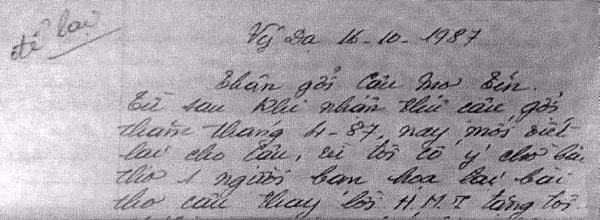 để lại
Vỹ Dạ 16-10-1987
Thân gởi Cậu
Từ sau khi nhận thư cậu gởi
tháng 4-87, nay mới viết
lại cho cậu, vì tôi có ý chờ bài
thơ 1 người bạn họa lại bài
thơ cậu thay lời H.M.T tặng tôi